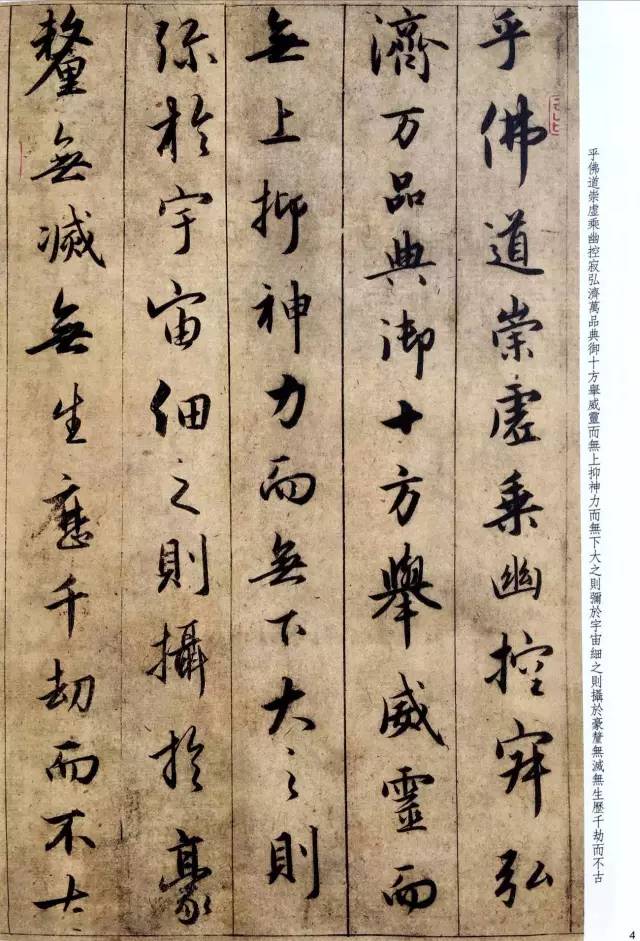 乎佛道崇虛乘幽控寂弘
濟万品典御十方舉威靈而
無上抑神力而無下大之則
弥於宇宙細之則攝於豪
釐無滅無生歷千劫而不古
乎佛道崇虛乘幽控寂弘濟萬品典御十方舉威靈而無上抑神力而無下大之則彌於宇宙細之則攝於豪釐無滅無生歷千劫而不古
4